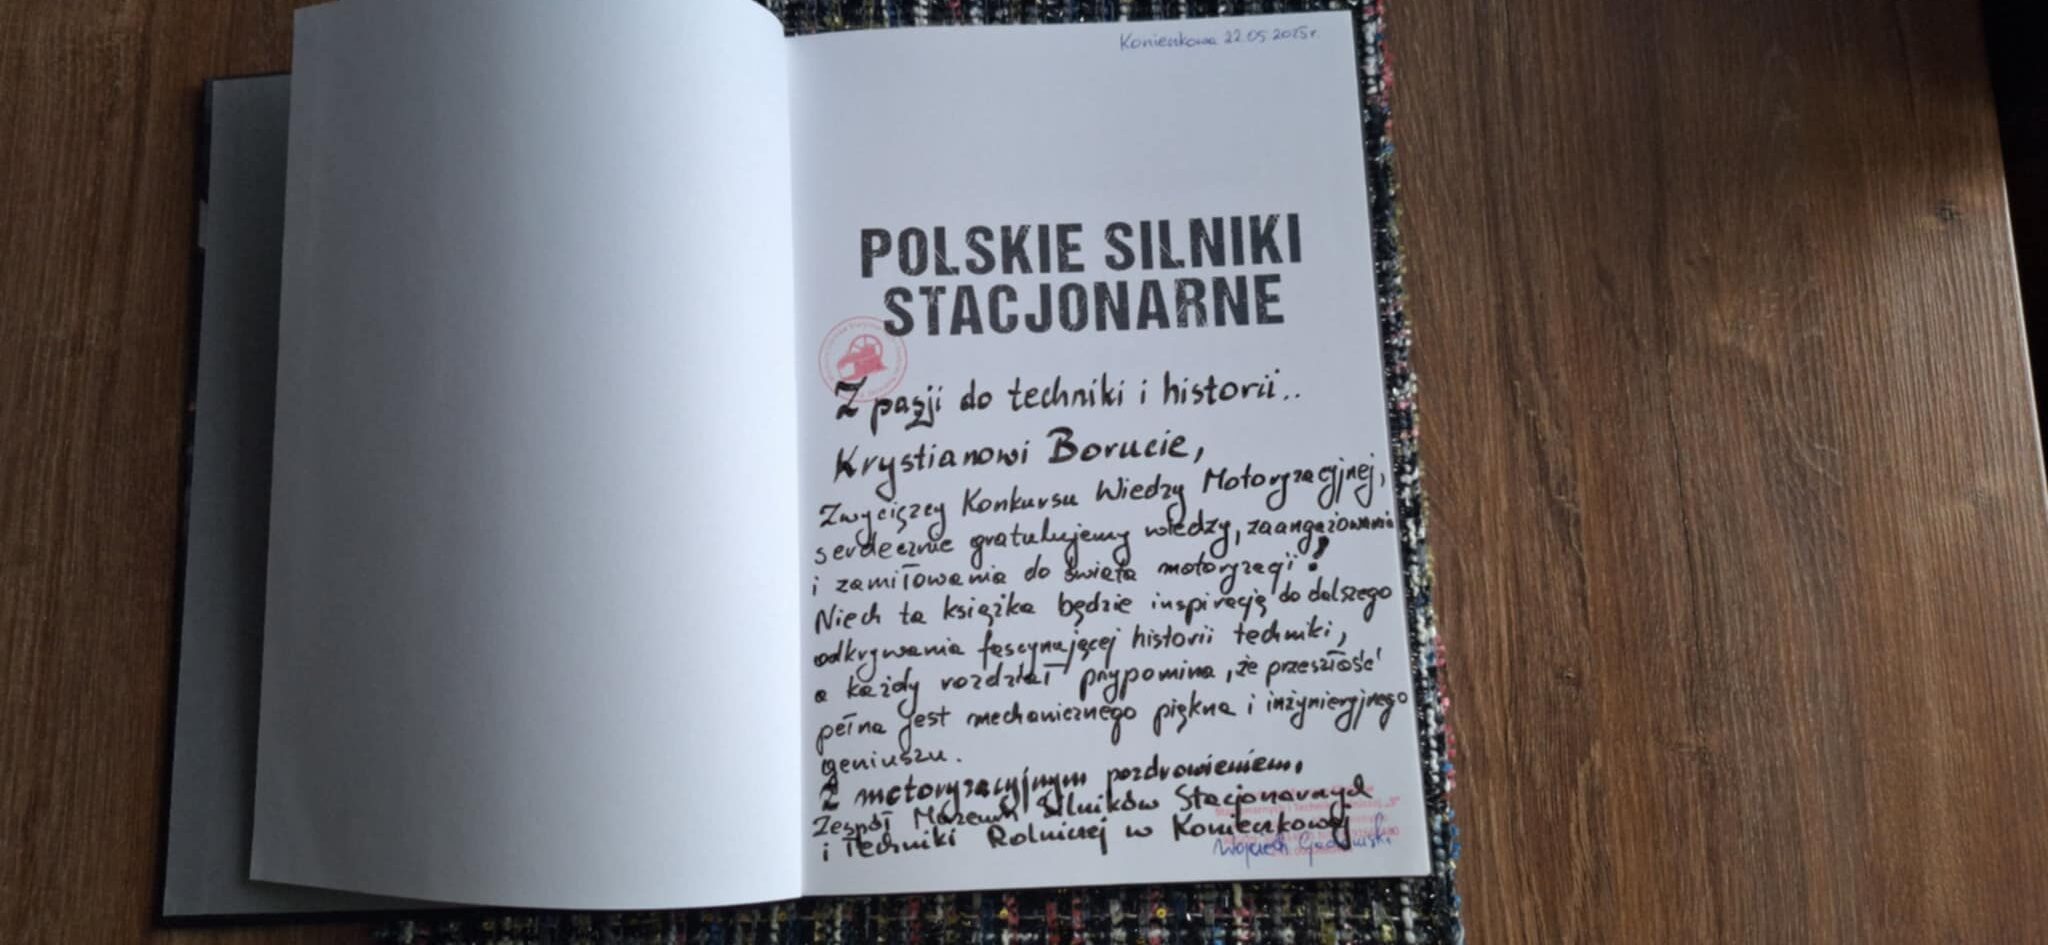 Konieczkowa 22.05.2025r.
POLSKIE SILNIKI
STACJONARNE
Z pasji do techniki i historii..
Krystianowi Borucie,
Zwycięzcy Konkursu Wiedzy Motoryzacyjnej,
serdecznie gratulujemy wiedzy, zaangażowania
i zamiłowania do świata motoryzacji!
Niech ta książka będzie inspiracją do dalszego
odkrywania fascynującej historii techniki,
a każdy rozdział przypomina, że przeszłość
pełna jest mechanicznego piękna i inżynieryjnego
geniuszu.
Z motoryzacyjnym pozdrowieniem,
Zespół Muzeum Silników Stacjonarnych
i Techniki Rolniczej w Konieczkowej
Wojciech